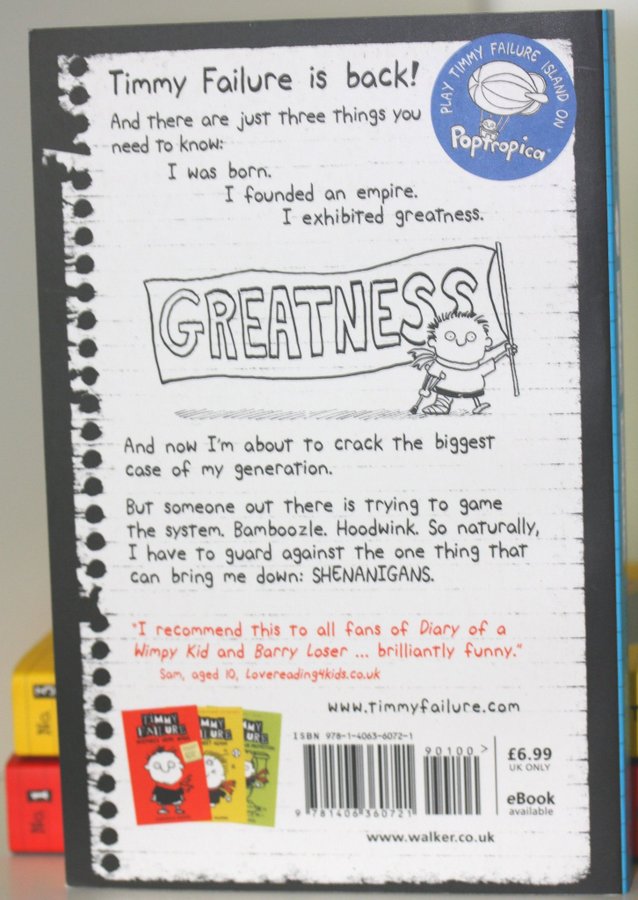 Timmy Failure is back!
PLAY TIMMY FAILURE ISLAND ON
Poptropica
And there are just three things you
need to know:
I was born.
I founded an empire.
I exhibited greatness.
GREATNESS
And now I'm about to crack the biggest
case of my generation.
But someone out there is trying to game
the system. Bamboozle. Hoodwink. So naturally,
I have to guard against the one thing that
can bring me down: SHENANIGANS.
"I recommend this to all fans of Diary of a
Wimpy Kid and Barry Loser ... brilliantly funny."
Sam, aged 10, Lovereading4kids.co.uk
www.timmyfailure.com
TIMMY
FAILURE
TIMMY
ISBN 978-1-4063-6072-1
90100 >
9 781406 360721
£6.99
UK ONLY
eBook
available
www.walker.co.uk
No.
No. 1